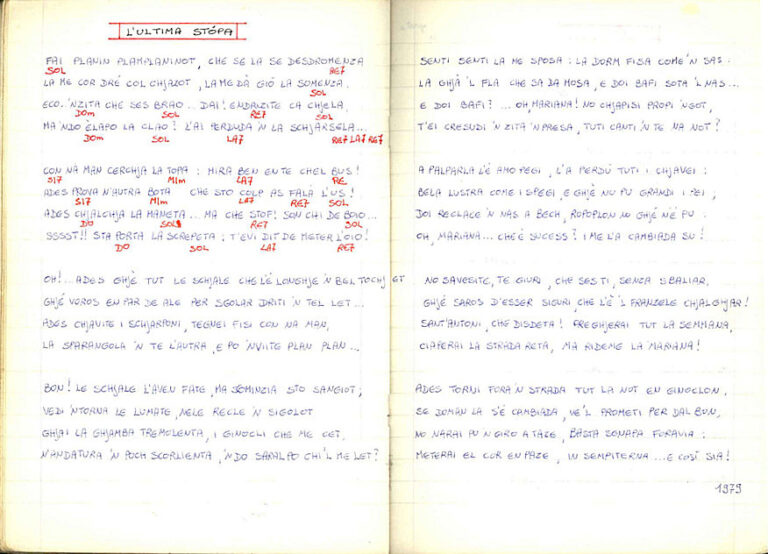 L'ULTIMA STÓPA
FAI PLANIN PLAMPLANINOT, CHÉ SE LA SE DESDROMENZA
SOL RE7
LA ME COR DRÉ COL CHJAZOT, LA ME DÀ GIÓ LA SOMENZA.
SOL
ECO. 'NZITA CHE SES BRAO.. DAI! ENDALZITE CA CHJELA,
DOm SOL RE7 SOL
MA 'NDO ÉLAPO LA CLAO? L'AI PERDUDA 'N LA SCHJARSELA...
DOm SOL LA7 RE7 LA7 RE7
CON NA MAN CERCHJA LA TOPA: MIRA BEN EN TE CHEL BUS!
SI7 MIm LA7 RE
ADES PROVA N'AUTRA BOTA CHE STO COLP AS FALA L'US!
SI7 MIm LA7 RE7 SOL
ADES CHJALCHJA LA MANETA... MA CHE STOF! SON CHI DE BOIO...
DO SOL RE7 SOL
SSSST!! STA PORTA LA SCREPETA: T'EVI DIT DE METER L'OIO!
DO SOL LA7 RE7
OH!... ADES GHJÈ TUT LE SCHJALE CHE L'È LONGHJE 'N BEL TOCHJET
GHJÉ VOROS EN PAR DE ALE PER SGOLAR DRITI 'N TEL LET...
ADES CHJAVITE I SCHJARPONI, TEGNEI FISI CON NA MAN,
LA SPARANGOLA 'N TE L'AUTRA, E PO 'NVIITE PLAN PLAN...
BON! LE SCHJALE L'AVEN FATE, MA SOMINZIA STO SANGIOT;
VEDI 'NTORNA LE LUMATE, NELE RECLE 'N SIGOLOT
GHJAI LA GHJAMBA TREMOLENTA, I GINOCLI CHE ME CET,
N'ANDATURA 'N POCH SCORLIENTA, 'NDO SARALPO CHI 'L ME LET?
SENTI SENTI LA ME SPOSA: LA DORM FISA COME 'N SAS:
LA GHJÀ 'L FLA CHE SA DA MOSA, E DOI BAFI SOTA 'L NAS...
E DOI BAFI? ... OH, MARIANA! NO CHJAPISI PROPI 'NGOT,
T'EI CRESUDI 'N ZITA 'N PRESA, TUTI CANTI 'N TE NA NOT?
A PALPARLA L'È AMO PEGI, L'A PERDÚ TUTI I CHJAVEI:
BELA LUSTRA COME I SPEGI, E GHJÈ NU PU GRANDI I PEI;
DOI RECLACE 'N NAS A BECH, ROPOPLON NO GHJÉ NE PU:
OH, MARIANA... CHE È SUCESS? I ME L'A CAMBIADA SU!
NO SAVESITE, TE GIURI, CHE SES TI, SENZA SBALIAR,
GHJÉ SAROS D'ESSER SIGURI CHE L'È 'L FRANZELE CHJALGHJAR!
SANT'ANTONI, CHE DISDETA! PREGHJERAI TUT LA SEMMANA,
CIAPERAI LA STRADA RETA, MA RIDEME LA MARIANA!
ADES TORNI FORA 'N STRADA TUT LA NOT EN GINOCLON,
SE DOMAN LA S'È CAMBIADA, VE 'L PROMETI PER DAL BON,
NO NARAI PU 'N GIRO A TAZE, BASTA SONAPA FORAVIA:
METERAI EL COR EN PAZE, IN SEMPITERNA... E COSÍ SIA!
1979